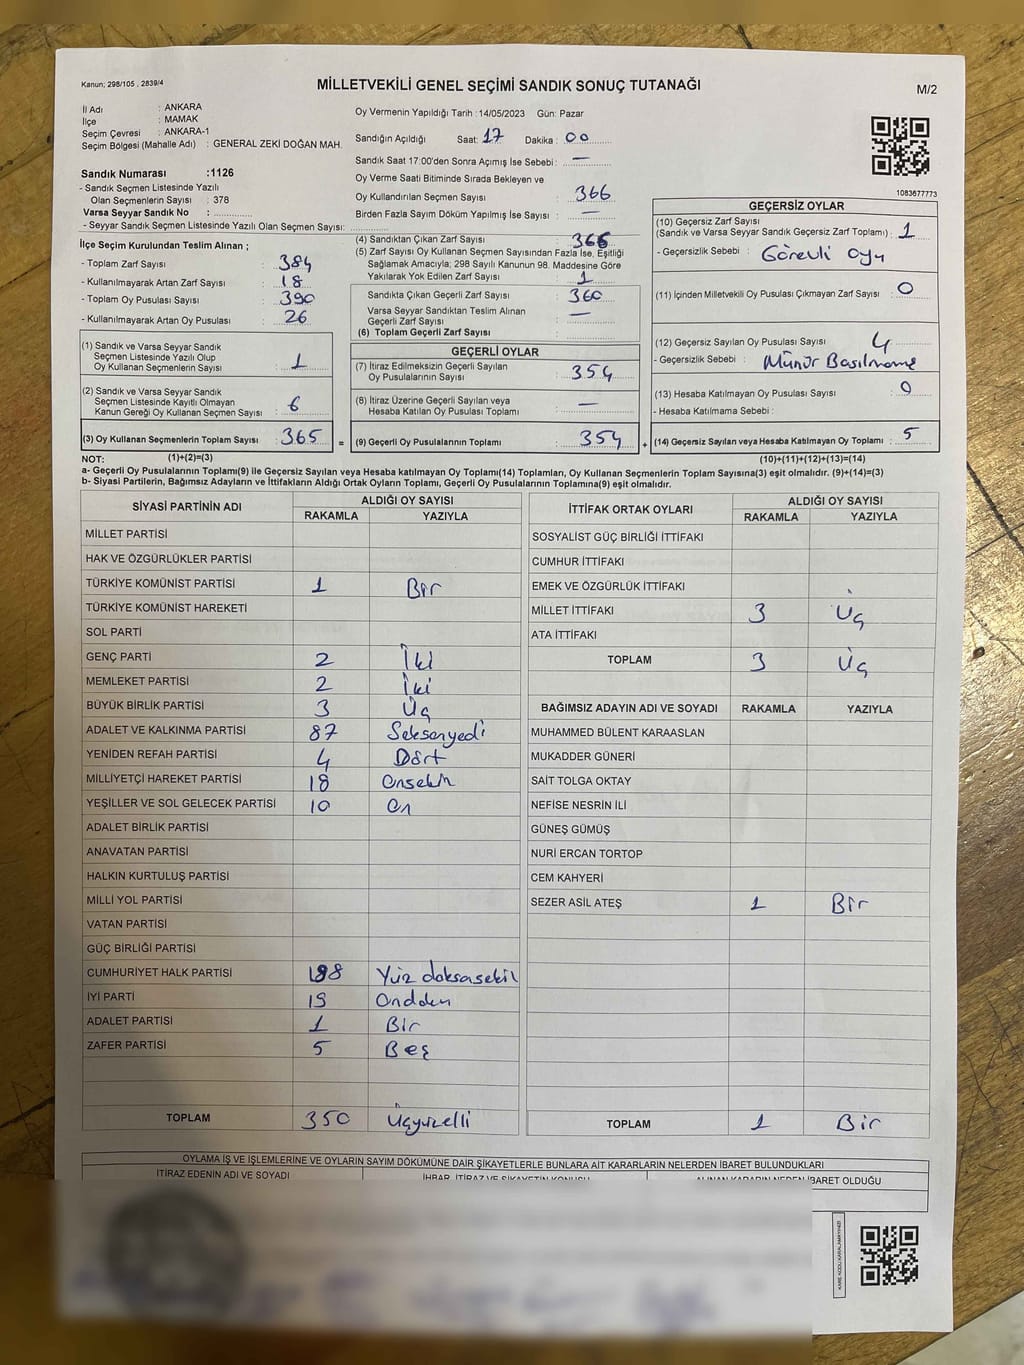 Kanun; 298/105 , 2839/4
MİLLETVEKİLİ GENEL SEÇİMİ SANDIK SONUÇ TUTANAĞI
M/2
İl Adı : ANKARA
İlçe : MAMAK
Seçim Çevresi : ANKARA-1
Seçim Bölgesi (Mahalle Adı) : GENERAL ZEKİ DOĞAN MAH.
Sandık Numarası :1126
- Sandık Seçmen Listesinde Yazılı
Olan Seçmenlerin Sayısı : 378
Varsa Seyyar Sandık No :
- Seyyar Sandık Seçmen Listesinde Yazılı Olan Seçmen Sayısı:
İlçe Seçim Kurulundan Teslim Alınan ;
- Toplam Zarf Sayısı : 384
- Kullanılmayarak Artan Zarf Sayısı : 18
- Toplam Oy Pusulası Sayısı : 390
- Kullanılmayarak Artan Oy Pusulası : 26
(1) Sandık ve Varsa Seyyar Sandık
Seçmen Listesinde Yazılı Olup
Oy Kullanan Seçmenlerin Sayısı : 1
(2) Sandık ve Varsa Seyyar Sandık
Seçmen Listesinde Kayıtlı Olmayan
Kanun Gereği Oy Kullanan Seçmen Sayısı : 6
(3) Oy Kullanan Seçmenlerin Toplam Sayısı : 365 =
Oy Vermenin Yapıldığı Tarih : 14/05/2023 Gün: Pazar
Sandığın Açıldığı Saat: 17 Dakika : 00
Sandık Saat 17:00'den Sonra Açımış İse Sebebi : —
Oy Verme Saati Bitiminde Sırada Bekleyen ve
Oy Kullandırılan Seçmen Sayısı : 366
Birden Fazla Sayım Döküm Yapılmış İse Sayısı : —
(4) Sandıktan Çıkan Zarf Sayısı : 366
(5) Zarf Sayısı Oy Kullanan Seçmen Sayısından Fazla İse, Eşitliği
Sağlamak Amacıyla; 298 Sayılı Kanunun 98. Maddesine Göre
Yakılarak Yok Edilen Zarf Sayısı : 1
Sandıkta Çıkan Geçerli Zarf Sayısı : 360
Varsa Seyyar Sandıktan Teslim Alınan
Geçerli Zarf Sayısı : —
(6) Toplam Geçerli Zarf Sayısı :
GEÇERLİ OYLAR
(7) İtiraz Edilmeksizin Geçerli Sayılan
Oy Pusulalarının Sayısı : 354
(8) İtiraz Üzerine Geçerli Sayılan veya
Hesaba Katılan Oy Pusulası Toplamı : —
(9) Geçerli Oy Pusulalarının Toplamı : 354 +
1083677773
GEÇERSİZ OYLAR
(10) Geçersiz Zarf Sayısı
(Sandık ve Varsa Seyyar Sandık Geçersiz Zarf Toplamı) : 1
- Geçersizlik Sebebi : Görevli oyu
(11) İçinden Milletvekili Oy Pusulası Çıkmayan Zarf Sayısı : 0
(12) Geçersiz Sayılan Oy Pusulası Sayısı : 4
- Geçersizlik Sebebi : Mühür Basılmama
(13) Hesaba Katılmayan Oy Pusulası Sayısı : 0
- Hesaba Katılmama Sebebi :
(14) Geçersiz Sayılan veya Hesaba Katılmayan Oy Toplamı : 5
NOT: (1)+(2)=(3)
(10)+(11)+(12)+(13)=(14)
a- Geçerli Oy Pusulalarının Toplamı(9) ile Geçersiz Sayılan veya Hesaba katılmayan Oy Toplamı(14) Toplamları, Oy Kullanan Seçmenlerin Toplam Sayısına(3) eşit olmalıdır. (9)+(14)=(3)
b- Siyasi Partilerin, Bağımsız Adayların ve İttifakların Aldığı Ortak Oyların Toplamı, Geçerli Oy Pusulalarının Toplamına(9) eşit olmalıdır.
SİYASİ PARTİNİN ADI ALDIĞI OY SAYISI
RAKAMLA YAZIYLA
MİLLET PARTİSİ
HAK VE ÖZGÜRLÜKLER PARTİSİ
TÜRKİYE KOMÜNİST PARTİSİ 1 Bir
TÜRKİYE KOMÜNİST HAREKETİ
SOL PARTİ
GENÇ PARTİ 2 İki
MEMLEKET PARTİSİ 2 İki
BÜYÜK BİRLİK PARTİSİ 3 Üç
ADALET VE KALKINMA PARTİSİ 87 Seksenyedi
YENİDEN REFAH PARTİSİ 4 Dört
MİLLİYETÇİ HAREKET PARTİSİ 18 Onsekiz
YEŞİLLER VE SOL GELECEK PARTİSİ 10 On
ADALET BİRLİK PARTİSİ
ANAVATAN PARTİSİ
HALKIN KURTULUŞ PARTİSİ
MİLLİ YOL PARTİSİ
VATAN PARTİSİ
GÜÇ BİRLİĞİ PARTİSİ
CUMHURİYET HALK PARTİSİ 198 Yüz doksasekil
İYİ PARTİ 19 Ondden
ADALET PARTİSİ 1 Bir
ZAFER PARTİSİ 5 Beş
TOPLAM 350 Üçyüzelli
İTTİFAK ORTAK OYLARI ALDIĞI OY SAYISI
RAKAMLA YAZIYLA
SOSYALİST GÜÇ BİRLİĞİ İTTİFAKI
CUMHUR İTTİFAKI
EMEK VE ÖZGÜRLÜK İTTİFAKI
MİLLET İTTİFAKI 3 Üç
ATA İTTİFAKI
TOPLAM 3 Üç
BAĞIMSIZ ADAYIN ADI VE SOYADI RAKAMLA YAZIYLA
MUHAMMED BÜLENT KARAASLAN
MUKADDER GÜNERİ
SAİT TOLGA OKTAY
NEFİSE NESRİN İLİ
GÜNEŞ GÜMÜŞ
NURİ ERCAN TORTOP
CEM KAHYERİ
SEZER ASİL ATEŞ 1 Bir
TOPLAM 1 Bir
OYLAMA İŞ VE İŞLEMLERİNE VE OYLARIN SAYIM DÖKÜMÜNE DAİR ŞİKAYETLERLE BUNLARA AİT KARARLARIN NELERDEN İBARET BULUNDUKLARI
İTİRAZ EDENİN ADI VE SOYADI İHBAR, İTİRAZ VE ŞİKAYETİN KONUSU ALINAN KARARIN NEDEN İBARET OLDUĞU